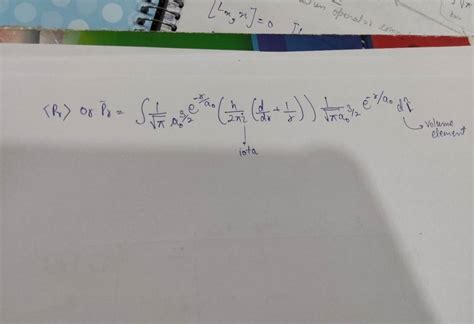 [Lx, x] = 0
operator
⟨Pr⟩ or P̄r = ∫ 1/√π a₀^3/2 e^-r/a₀ (h/2πi (d/dr + 1/r)) 1/√π a₀^3/2 e^-r/a₀ dτ
iota
volume element